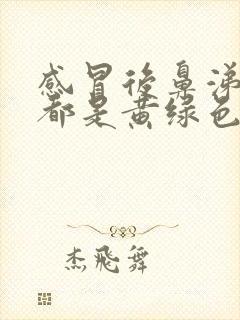 感冒後鼻涕
都是黄绿色
杰飛舞